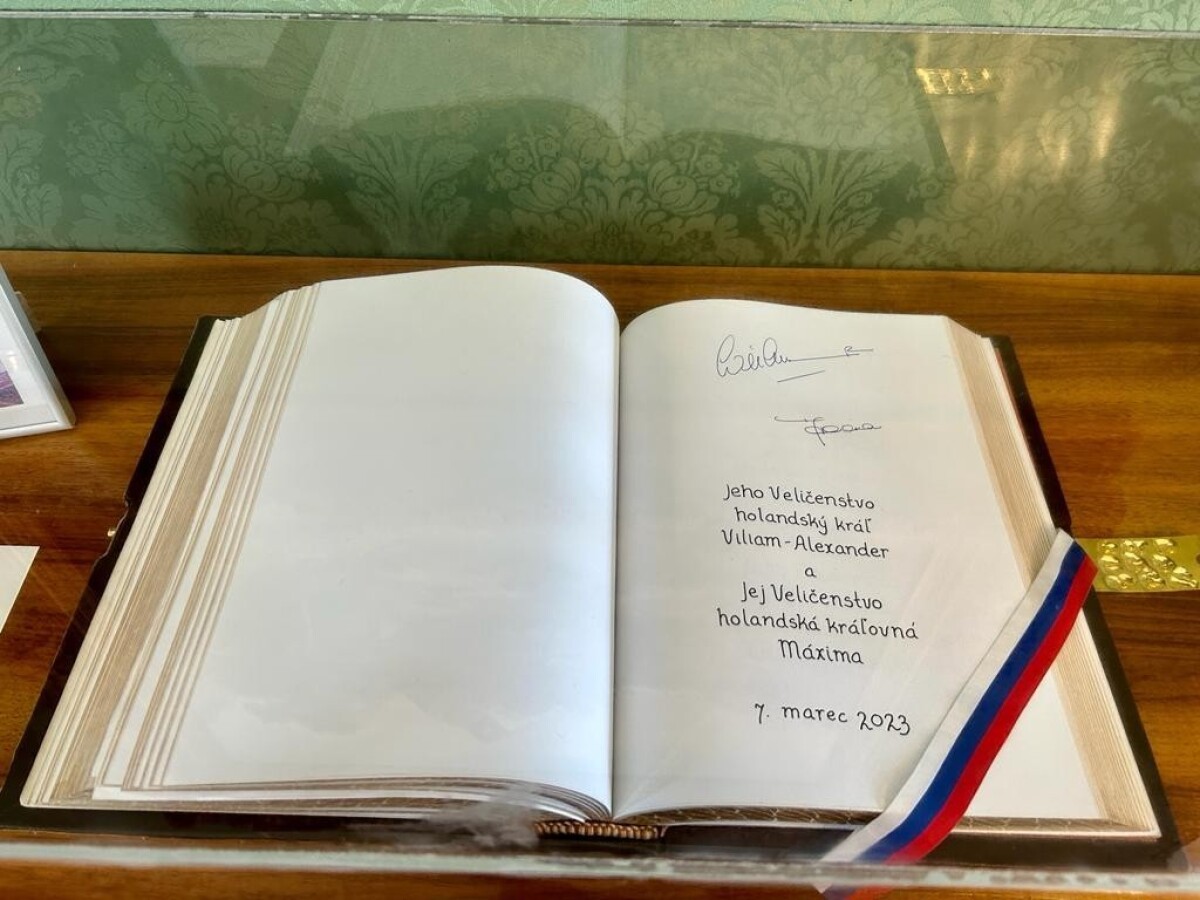 Jeho Veličenstvo
holandský kráľ
Viliam-Alexander
a
Jej Veličenstvo
holandská kráľovná
Máxima
7. marec 2023